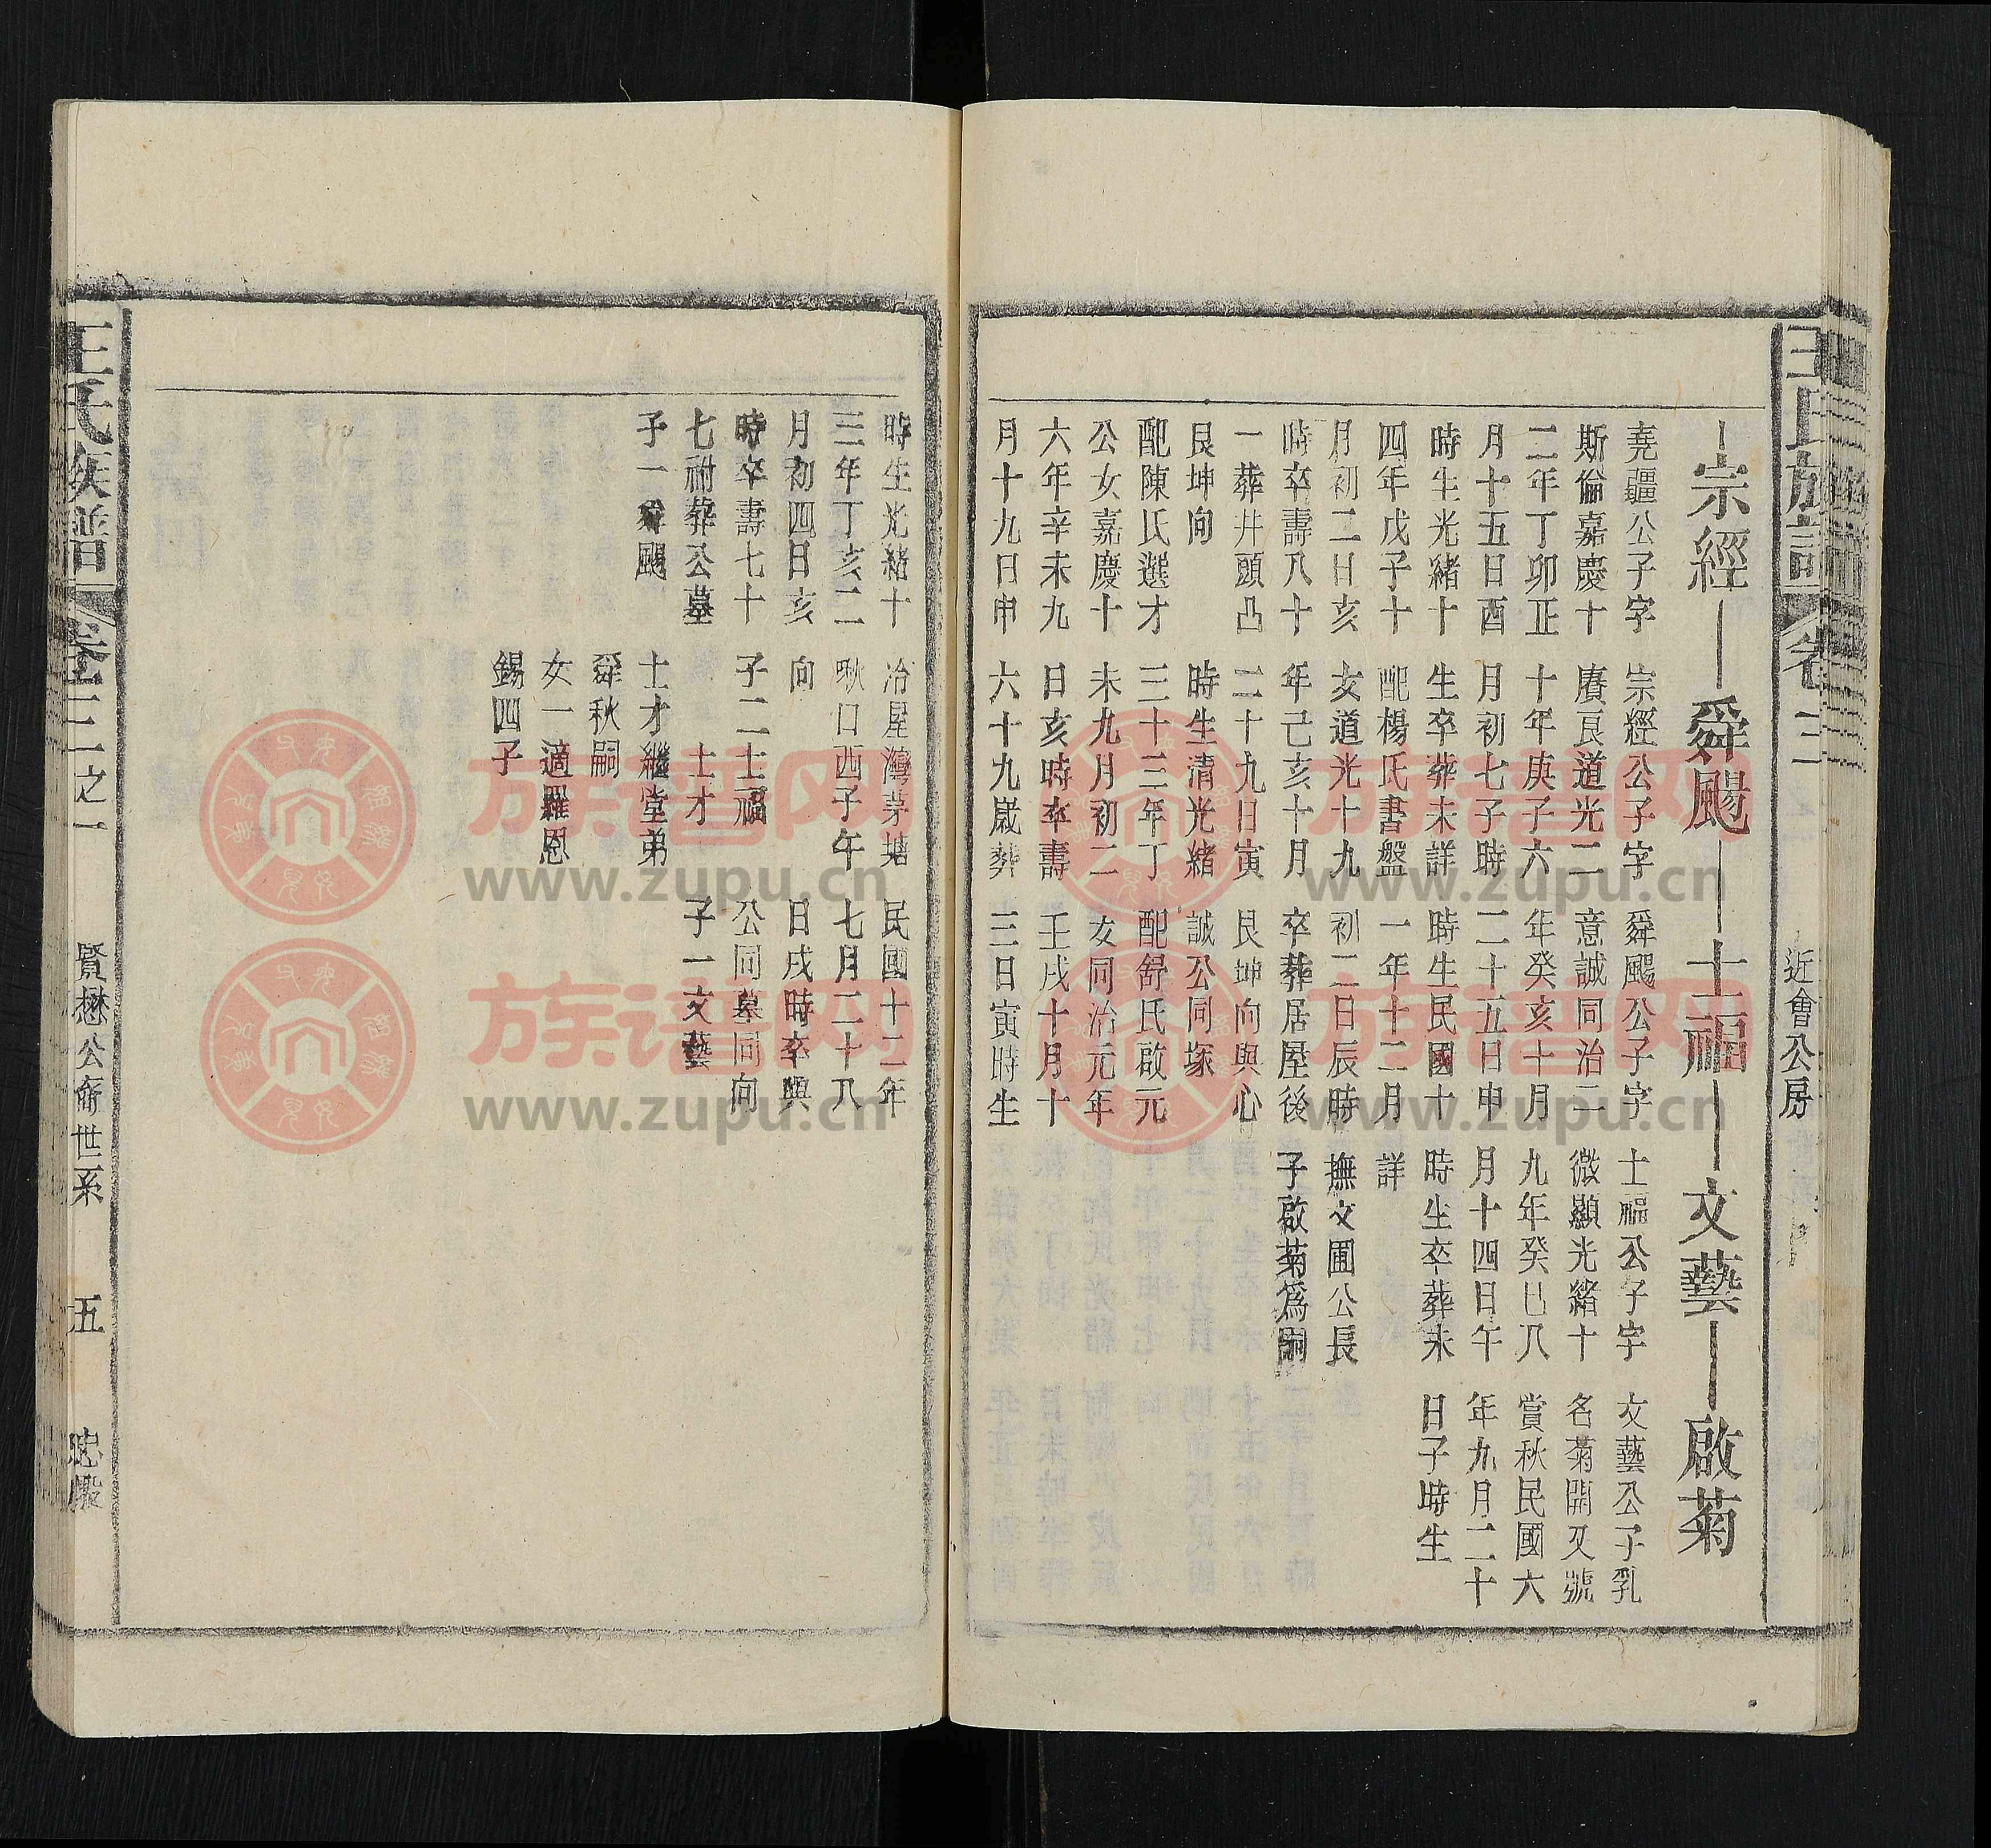 王氏族譜 卷三 近會公房
宗經 舜颺 士福 文藝 啟菊
堯疆公子字
斯倫嘉慶十
二年丁卯正
月十五日酉
時生光緒十
四年戊子十
月初二日亥
時卒壽八十
一葬井頭凸
艮坤向
配陳氏選才
公女嘉慶十
六年辛未九
月十九日申
時生光緒十
三年丁亥二
月初四日亥
時卒壽七十
七祔葬公墓
子一舜颺
宗經公子字
賡良道光二
十年庚子六
月初七子時
生卒葬未詳
配楊氏書盤
女道光十九
年己亥十月
二十九日寅
時生清光緒
三十三年丁
未九月初二
日亥時卒壽
六十九歲葬
冶屋灣茅塘
墈口西子午
向
子二士福
士才
士才繼堂弟
舜秋嗣
女一適羅恩
錫四子
舜颺公子字
意誠同治二
年癸亥十月
二十五日申
時生民國十
一年十二月
初二日辰時
卒葬居屋後
艮坤向與心
誠公同塚
配舒氏啟元
女同治元年
壬戌十月十
三日寅時生
民國十二年
七月二十八
日戌時卒與
公同墓同向
子一文藝
士福公子字
微顯光緒十
九年癸巳八
月十四日午
時生卒葬未
詳
撫文圃公長
子啟菊為嗣
文藝公子乳
名菊開又號
賞秋民國六
年九月二十
日子時生
王氏族譜 卷三之一 賢懋公裔世系 五 忠嚴
族谱网
www.zupu.cn
族谱网
www.zupu.cn
族谱网
www.zupu.cn
族谱网
www.zupu.cn